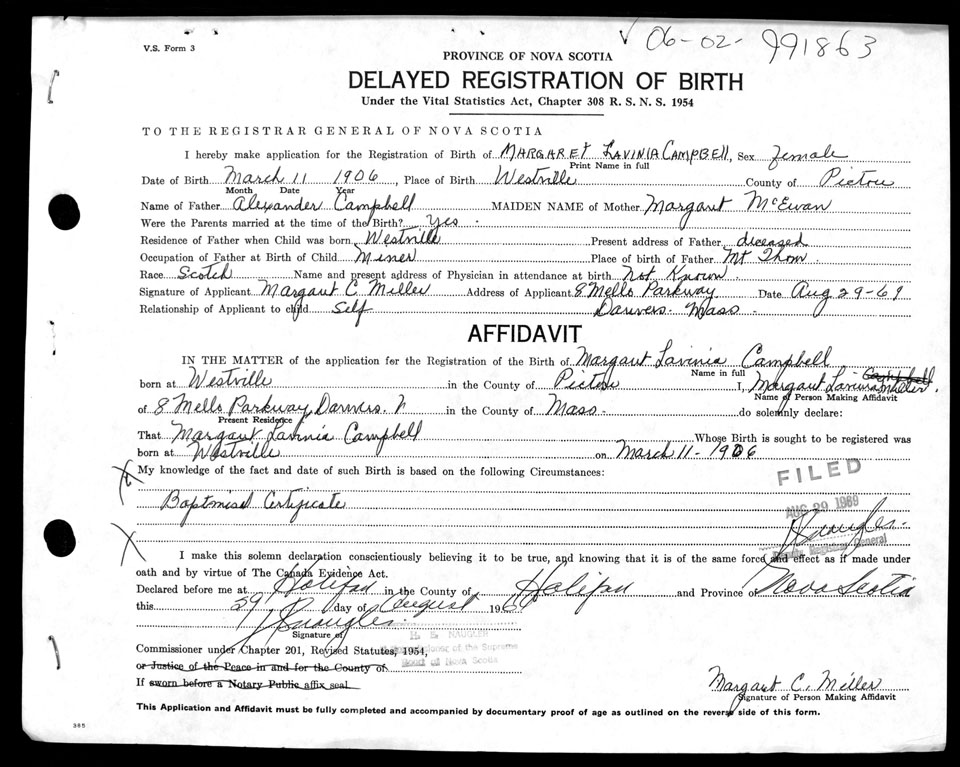 V.S. Form 3
√ 06-02- 991863
PROVINCE OF NOVA SCOTIA
DELAYED REGISTRATION OF BIRTH
Under the Vital Statistics Act, Chapter 308 R. S. N. S. 1954
TO THE REGISTRAR GENERAL OF NOVA SCOTIA
I hereby make application for the Registration of Birth of MARGARET LAVINIA CAMPBELL, Sex female
Print Name in full
Date of Birth March 11 1906, Place of Birth Westville County of Pictou
Month Date Year
Name of Father Alexander Campbell MAIDEN NAME of Mother Margaret McEwan
Were the Parents married at the time of the Birth? Yes.
Residence of Father when Child was born Westville Present address of Father diceased
Occupation of Father at Birth of Child Miner Place of birth of Father Mt Thom
Race Scotch Name and present address of Physician in attendance at birth Not Known
Signature of Applicant Margaret C Miller Address of Applicant 8 Mello Parkway Date Aug 29-69
Relationship of Applicant to child Self Danvers. Mass.
AFFIDAVIT
IN THE MATTER of the application for the Registration of the Birth of Margaret Lavinia Campbell
Name in full
born at Westville in the County of Pictou I, Margaret Lavinia Miller.
Name of Person Making Affidavit
of 8 Mello Parkway Danvers. in the County of Mass. do solemnly declare:
Present Residence
That Margaret Lavinia Campbell Whose Birth is sought to be registered was
born at Westville on March 11-1906
My knowledge of the fact and date of such Birth is based on the following Circumstances:
FILED
Baptmisal Certificate
AUG 29 1969
HENaugler.
Deputy Registrar General
I make this solemn declaration conscientiously believing it to be true, and knowing that it is of the same force and effect as if made under
oath and by virtue of The Canada Evidence Act.
Declared before me at Halifax in the County of Halifax and Province of Nova Scotia
this 29 day of August 1969
HENaugler.
Signature of
H. E. NAUGLER
Commissioner of the Supreme
Commissioner under Chapter 201, Revised Statutes, 1954,
Court of Nova Scotia
or Justice of the Peace in and for the County of
If sworn before a Notary Public affix seal
Margaret C. Miller
Signature of Person Making Affidavit
This Application and Affidavit must be fully completed and accompanied by documentary proof of age as outlined on the reverse side of this form.
385